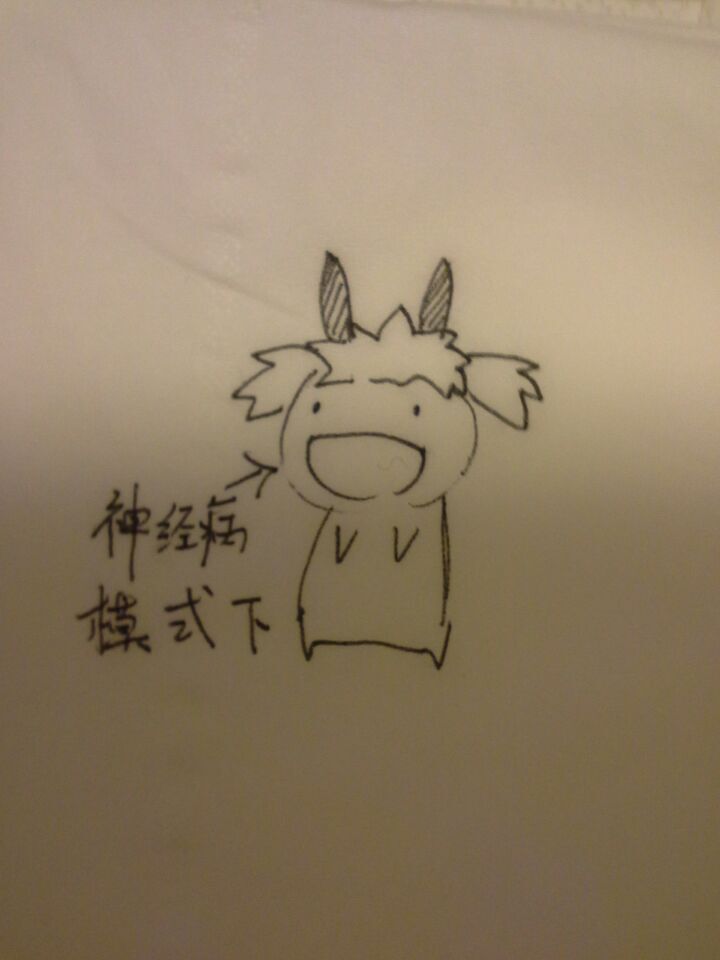 神经病
模式下